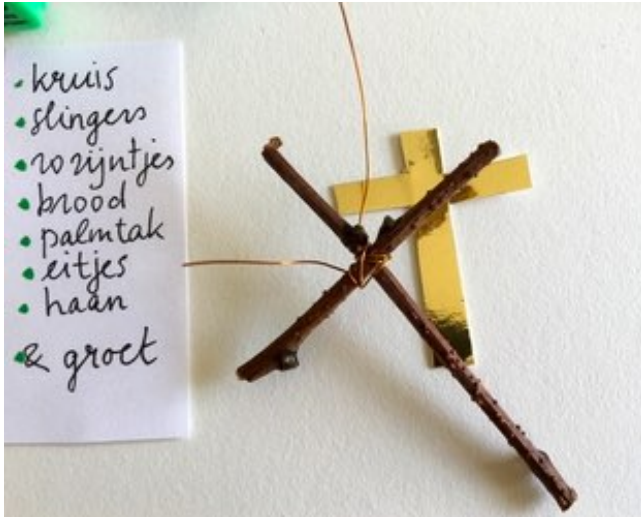 · kruis
· slingers
· rozijntjes
· brood
· palmtak
· eitjes
· haan
· & groet